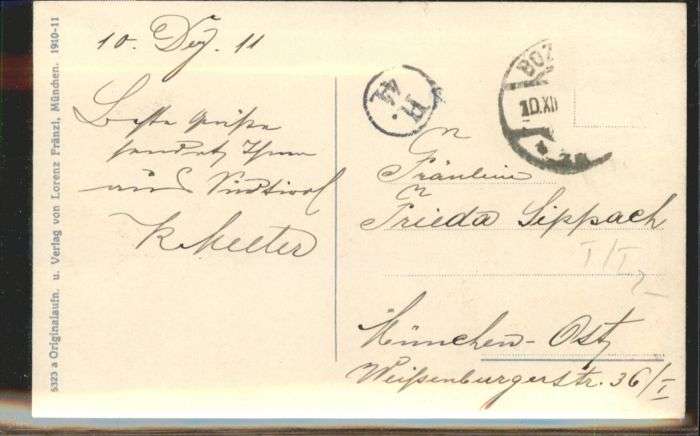 10. Dez. 11
Beste Grüße
sendet Ihnen
aus Südtirol
K Meeter
Fräulein
Frieda Sippach
I/I
München-Ost
Weißenburgerstr. 36/I
BOZ
10.XII
5323 a Originalaufn. u. Verlag von Lorenz Fränzl, München. 1910-11